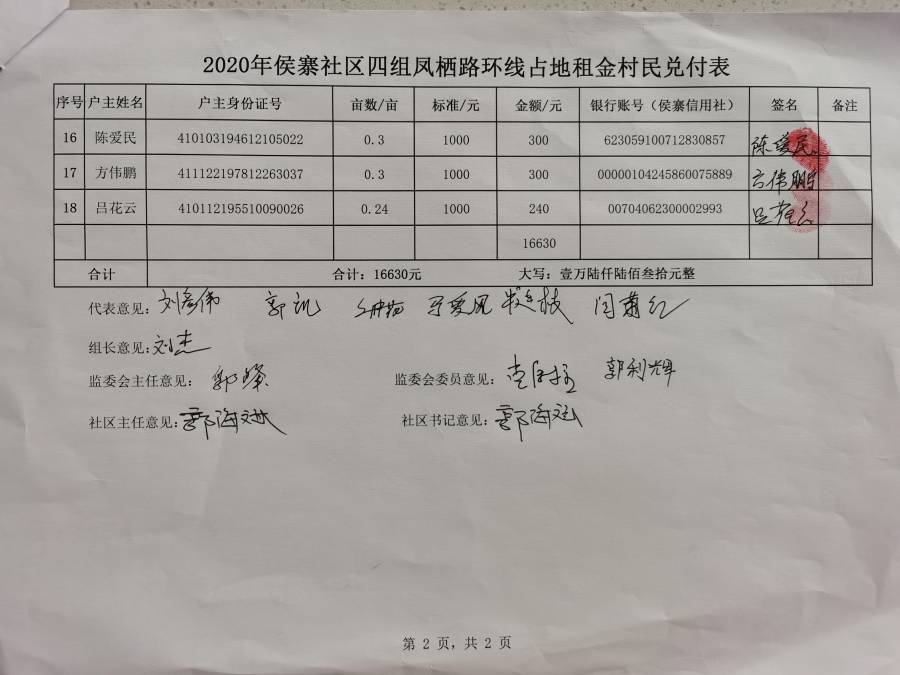 2020年侯寨社区四组凤栖路环线占地租金村民兑付表
序号 户主姓名 户主身份证号 亩数/亩 标准/元 金额/元 银行账号（侯寨信用社） 签名 备注
16 陈爱民 410103194612105022 0.3 1000 300 623059100712830857 陈爱民
17 方伟鹏 411122197812263037 0.3 1000 300 00000104245860075889 方伟鹏
18 吕花云 410112195510090026 0.24 1000 240 00704062300002993 吕花云
16630
合计 合计：16630元 大写：壹万陆仟陆佰叁拾元整
代表意见：刘彦伟 郭凯
组长意见：刘杰
监委会主任意见： 监委会委员意见： 郭利辉
社区主任意见： 社区书记意见：
第 2 页，共 2 页